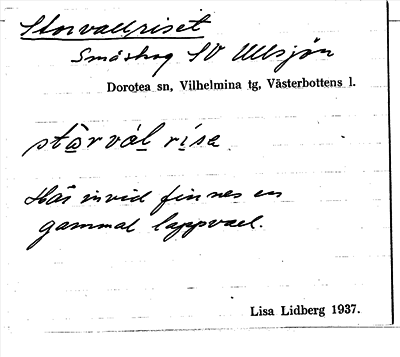 Storvallriset
Småskog SV Ullsjön
Dorotea sn, Vilhelmina tg, Västerbottens l.
stårvàl rìsa
Här invid finnes en
gammal lappvall.
Lisa Lidberg 1937.